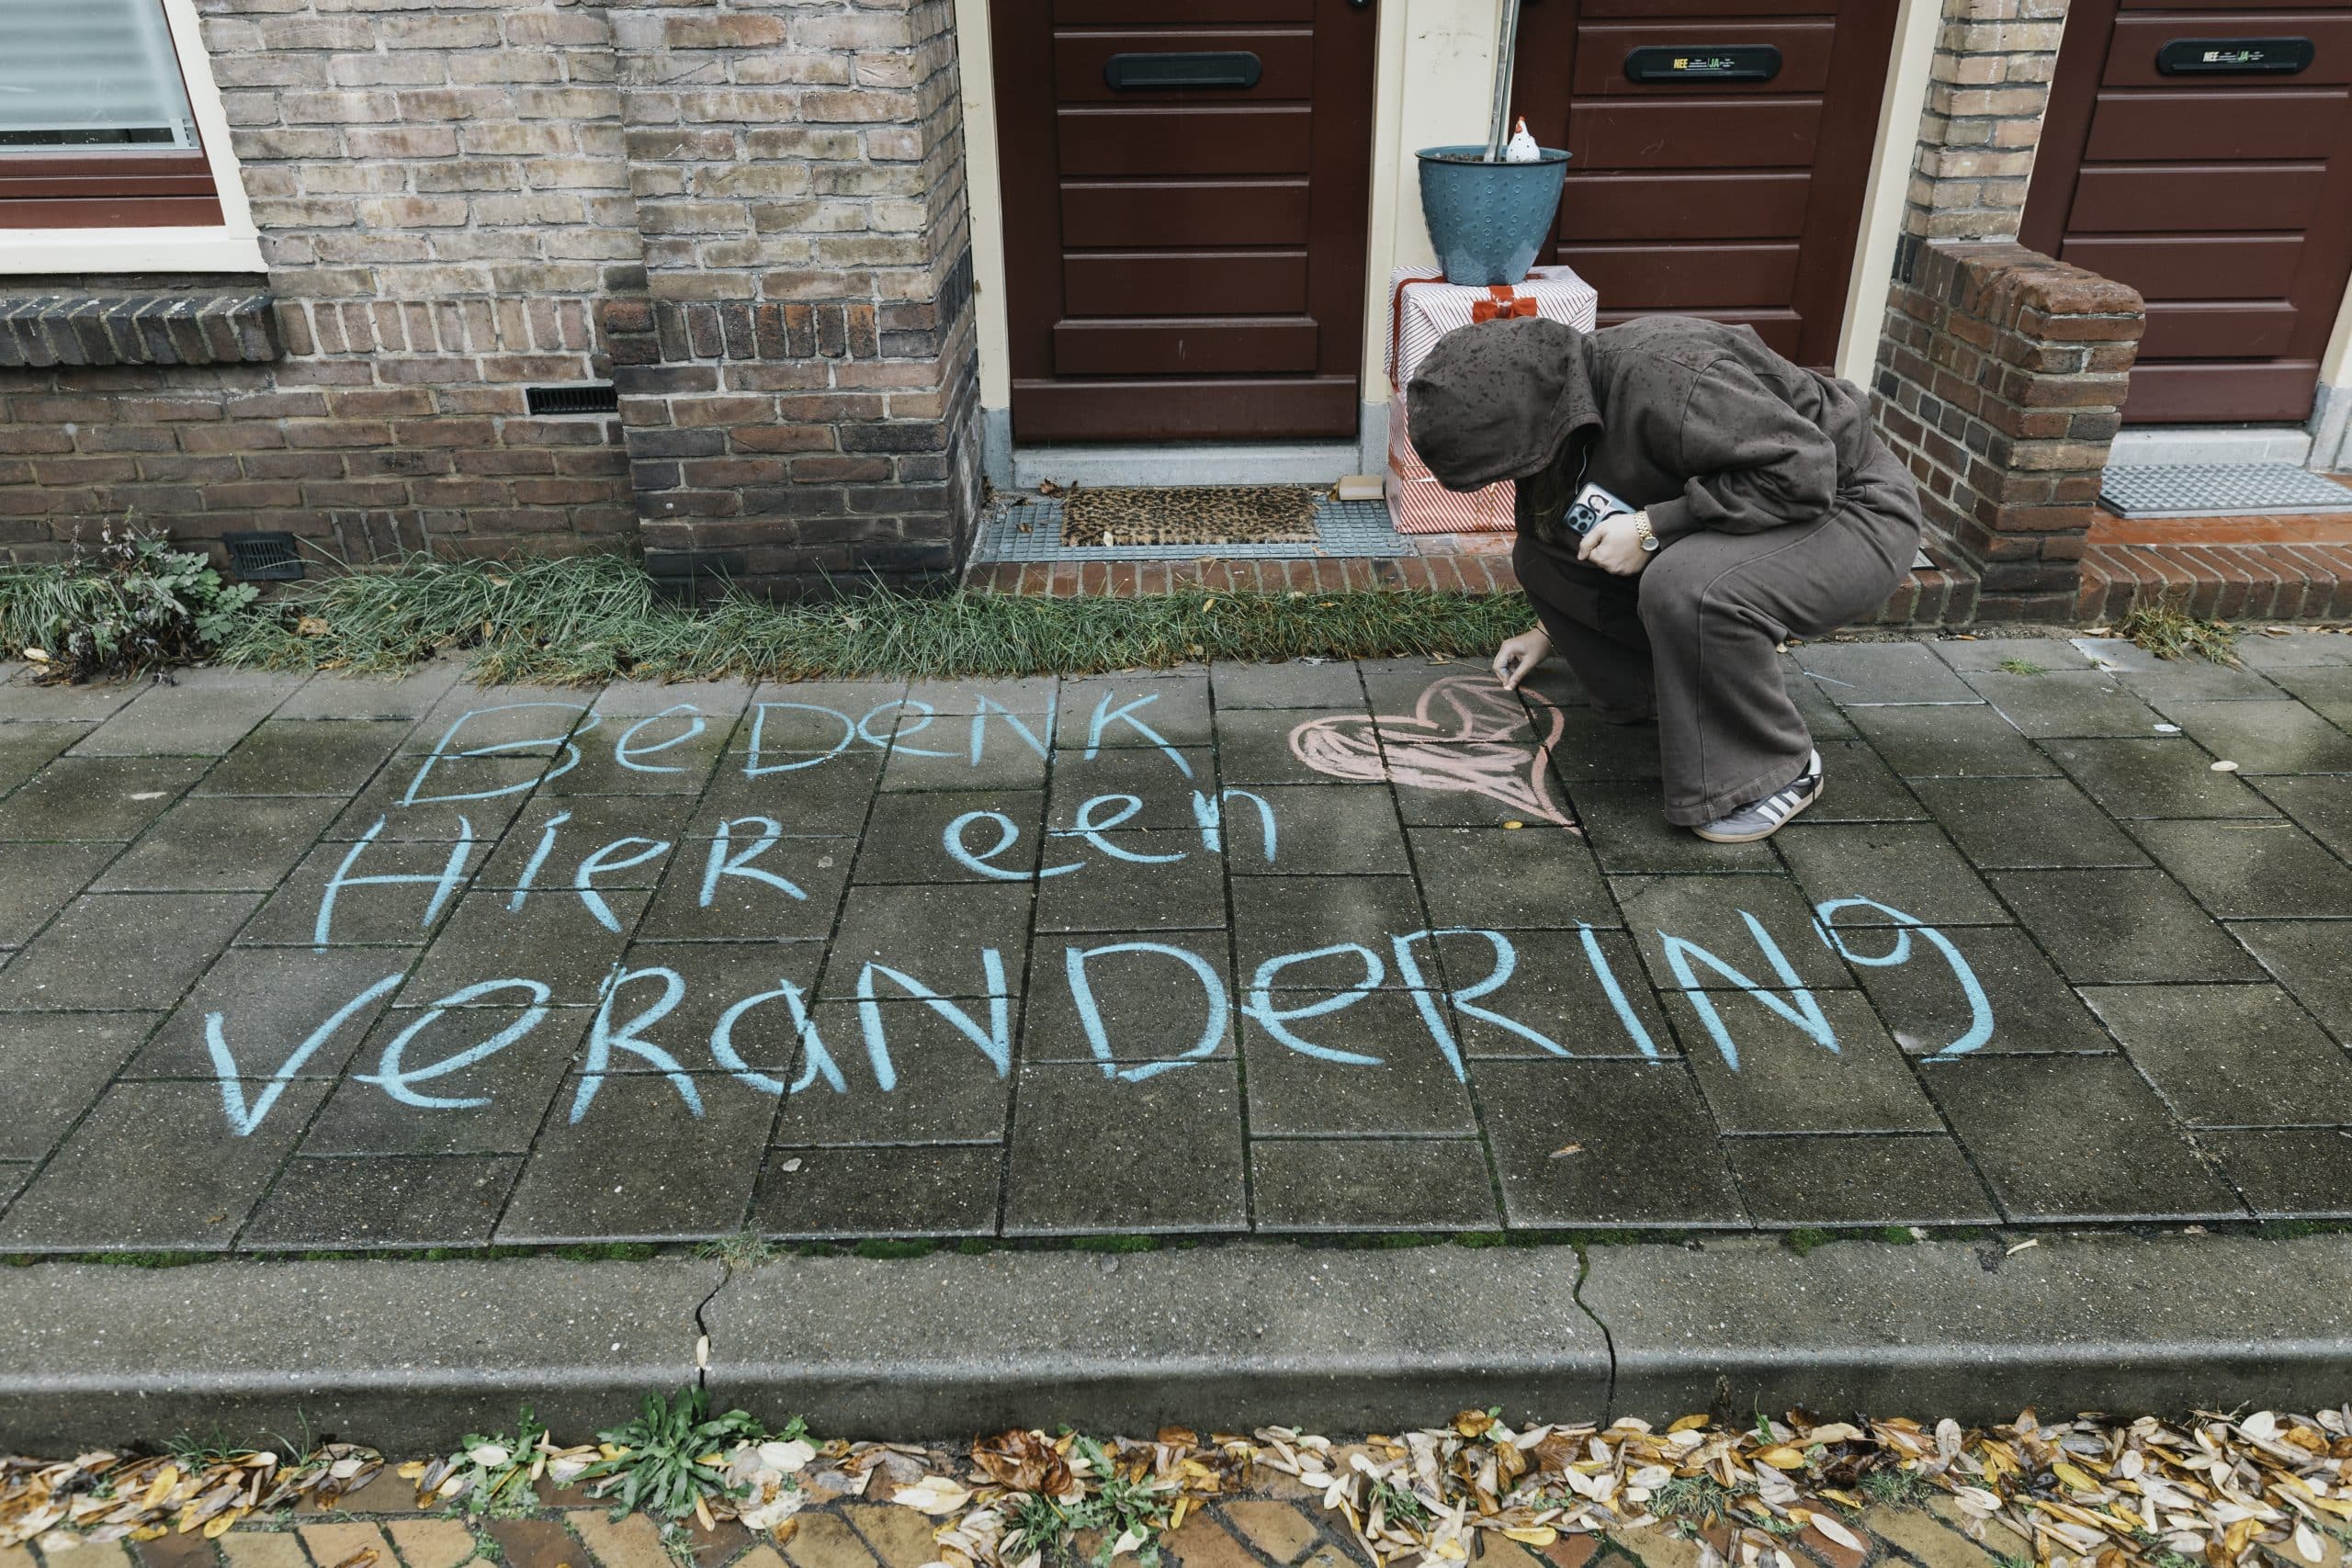 NEE JA
NEE JA
BeDeNK
Hier een
VeRaNDeRING